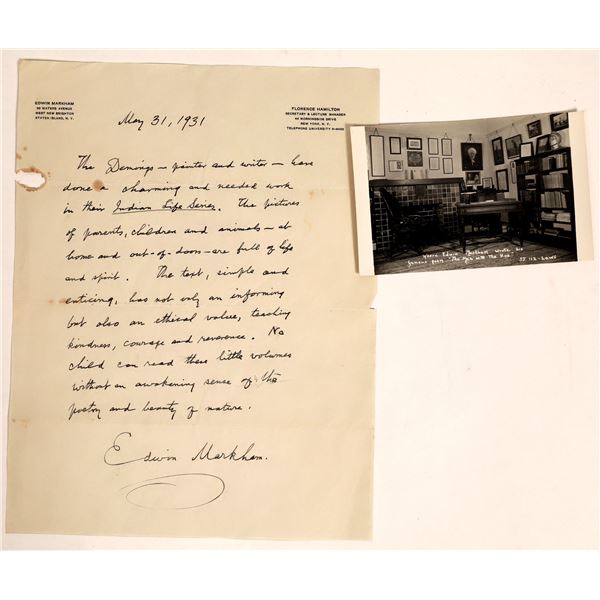 EDWIN MARKHAM
92 WATERS AVENUE
WEST NEW BRIGHTON
STATEN ISLAND, N. Y.
FLORENCE HAMILTON
SECRETARY & LECTURE MANAGER
44 MORNINGSIDE DRIVE
NEW YORK, N. Y.
TELEPHONE UNIVERSITY
May 31, 1931
The Demings — painter and writer — have
done a charming and needed work
in their Indian Life Series. The pictures
of parents, children and animals — at
home and out-of-doors — are full of life
and spirit. The text, simple and
enticing, has not only an informing
but also an ethical value, teaching
kindness, courage and reverence. No
child can read these little volumes
without an awakening sense of the
poetry and beauty of nature.
Edwin Markham.
Where Edwin Markham wrote his
famous poem - "The Man With The Hoe"
SJ 112 - LAWS